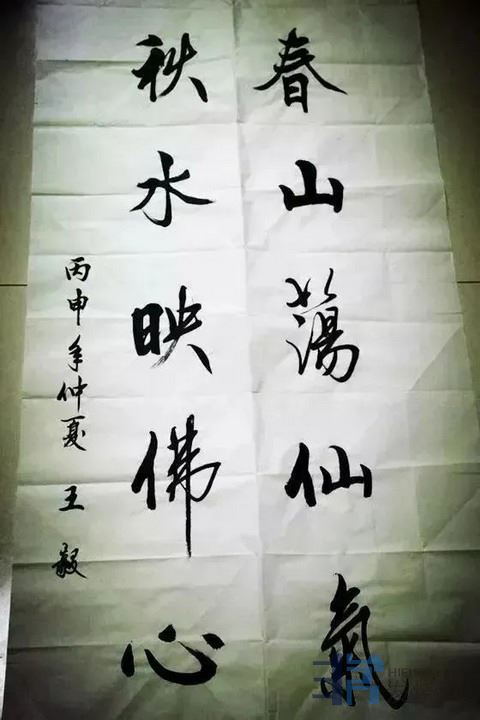 春山蕩仙氣
秋水映佛心
丙申年仲夏 王毅